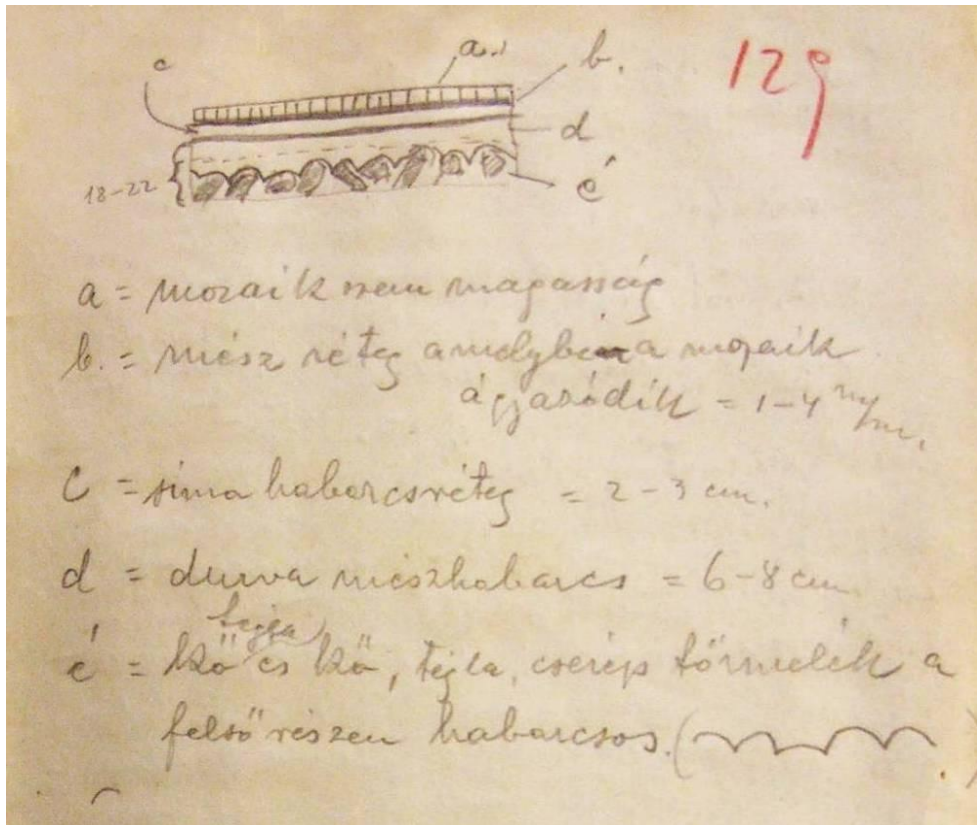 129
a.
b.
c
d
é
18-22
a = mozaik szem magasság
b. = mész réteg amelyben a mozaik
ágyazódik = 1-4 m/m.
c = sima habarcsréteg = 2-3 cm.
d = durva mészhabarcs = 6-8 cm
tégla
é = kő és kő, tégla, cserép törmelék a
felső részen habarcsos. ( )